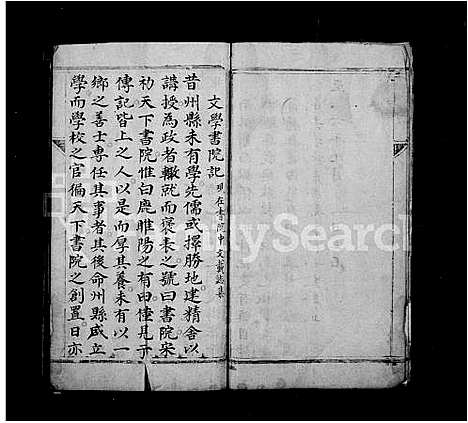 文學書院記 現在書院中文載志集
昔州縣未有學先儒或擇勝地建精舍以
講授為政者輙就而褒表之號曰書院宋
初天下書院惟白鹿睢陽之有由僅見于
傳記皆上之人以是而厚其養未有以一
鄉之善士專任其事者其後命州縣咸立
學而學校之官徧天下書院之創置日亦
FamilySearch